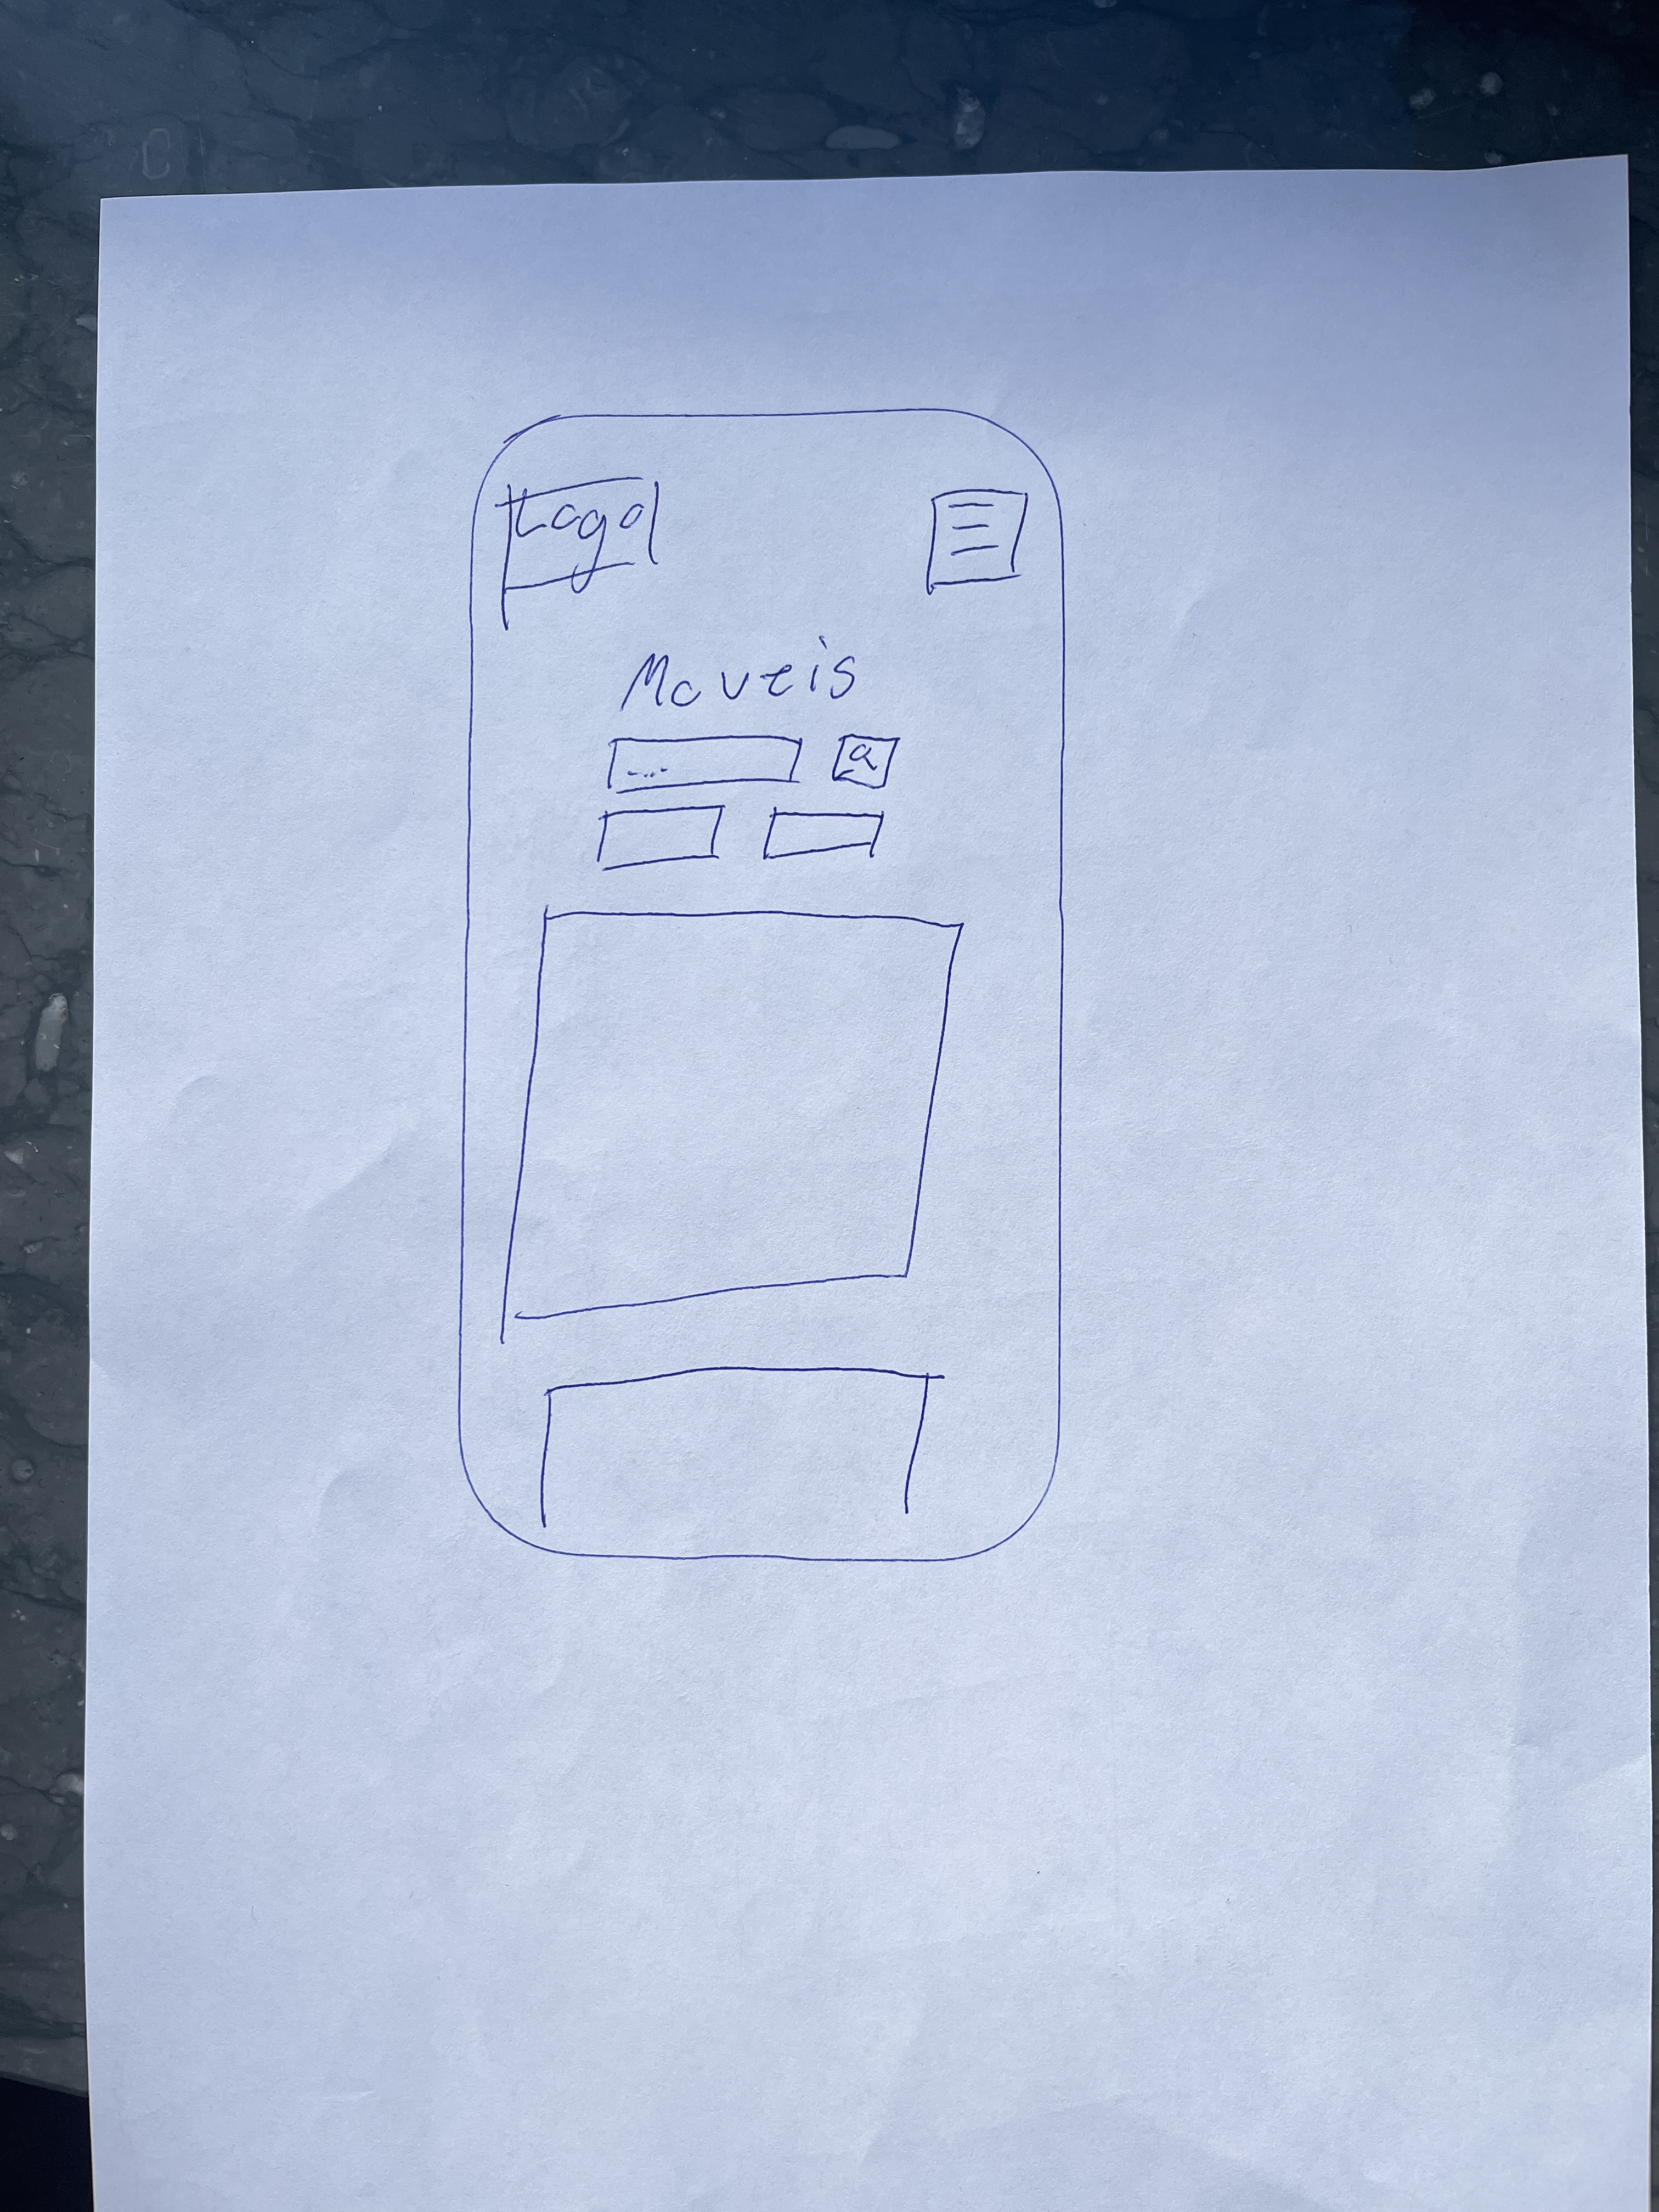 Logo
Moveis
....